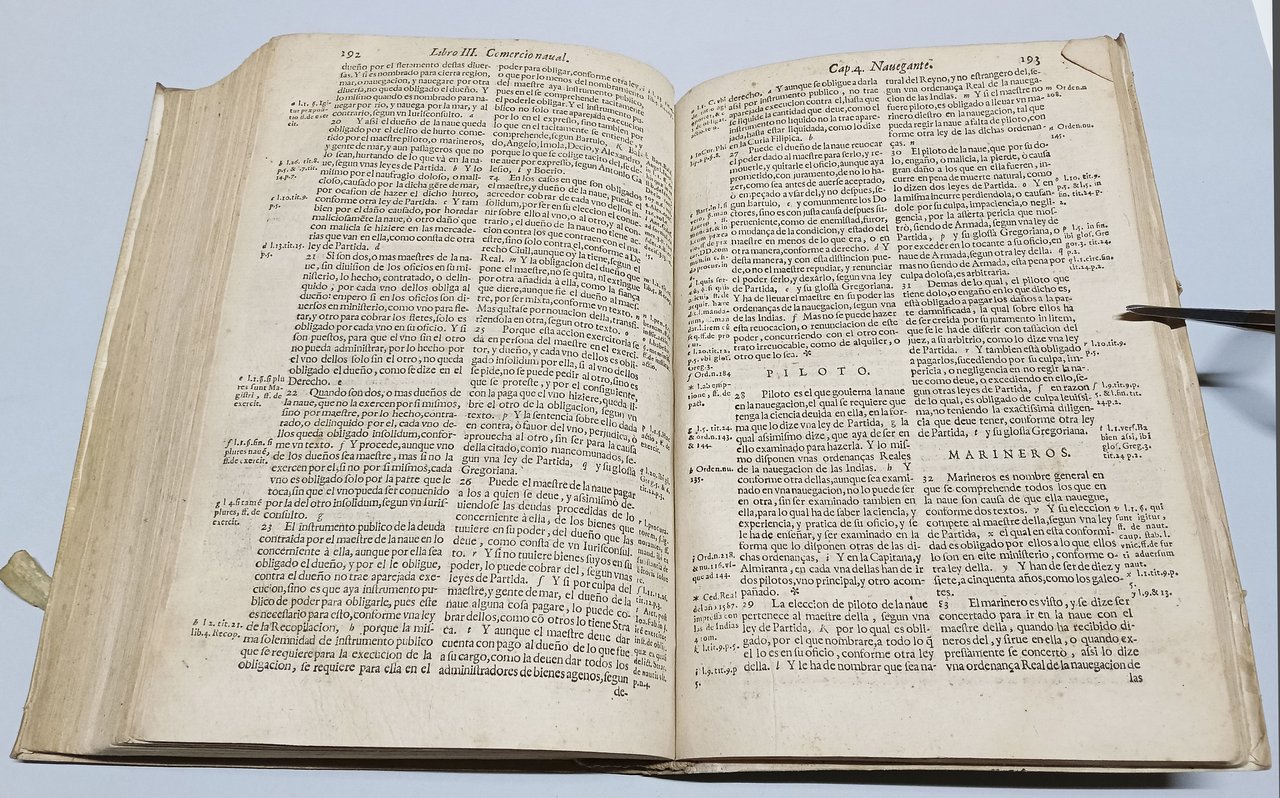 292
Libro III. Comercio naual.
dueño por el fletamento destas diuer-
sas. Y si es nombrado para cierta region,
mar, o nauegacion, y nauegare por otra
diuersa, no queda obligado el dueño. Y
lo mismo quando es nombrado para na-
uegar por rio, y nauega por la mar, y al
contrario, segun vn Iurisconsulto. a
20 Y assi el dueño de la naue queda
obligado por el delito de hurto come-
tido por el maestre piloto, o marineros,
y gente de mar, y aun passageros que no
lo sean, hurtando de lo que và en la na-
ue, segun vnas leyes de Partida. b Y lo
mismo por el naufragio doloso, o mali-
cioso, causado por la dicha gẽte de mar,
por ocasion de hazer el dicho hurto,
conforme otra ley de Partida. c Y tam
bien por el daño causado, por horadar
maliciosamẽte la naue, ò otro daño que
con malicia se hiziere en las mercade-
rias que van en ella, como consta de otra
ley de Partida. d
21 Si son dos, o mas maestres de la na-
ue, sin diuision de los oficios en su mi-
nisterio, lo hecho, contratado, o delin-
quido, por cada vno dellos obliga al
dueño: empero si en los oficios son di-
uersos en ministerio, como vno para fle-
tar, y otro para cobrar los fletes, solo es
obligado por cada vno en su oficio. Y si
son puestos, para que el vno sin el otro
no pueda administrar, por lo hecho por
el vno dellos solo sin el otro, no queda
obligado el dueño, como se dize en el
Derecho. e
22 Quando son dos, o mas dueños de
la naue, que no la exercen por si mismos,
sino por maestre, por lo hecho, contra-
tado, o delinquido por el, cada vno de-
llos queda obligado insolidum, confor-
me vn texto. f Y procede, aunque vno
de los dueños sea maestre, mas si no la
exercen por el, si no por si mismos, cada
vno es obligado solo por la parte que le
toca, sin que el vno pueda ser conuenido
por la del otro insolidum, segun vn Iuris-
consulto. g
23 El instrumento publico de la deuda
contraida por el maestre de la naue en lo
concerniente à ella, aunque por ella sea
obligado el dueño, y por el le obligue,
contra el dueño no trae aparejada exe-
cucion, sino es que aya instrumento pu-
blico de poder para obligarle, pues este
es necessario para esto, conforme vna ley
de la Recopilacion, h porque la mis-
ma solemnidad de instrumento publico
que se requiere para la execucion de la
obligacion, se requiere para ella en el
a l. 1. §. Igi-
tur præpo-
sitio ff. de exer-
cit.
b l. 26. tit. 8.
p. 5. & l. 7. tit.
14. p. 7.
c l. 10. tit. 9.
p. 5.
d l. 13. tit. 15.
p. 5.
e l. 1. §. si plu
res sunt Ma-
gistri, ff. de
exercit.
f l. 1. §. fin. si
plures nauẽ,
ff. de exercit.
g l. 4. si tamẽ
plures, ff. de
exercit.
h l. 2. tit. 21.
lib. 4. Recop.
poder para obligar, conforme otra ley, i
o que por lo menos del nombramiento
del maestre aya instrumento publico,
pues en el se comprehende tacitamente
el poderle obligar. Y el instrumento pu-
blico no solo trae aparejada execucion
por lo en el expresso, sino tambien por
lo que en el tacitamente se entiende, y
comprehende, segun Bartulo, k Bal-
do, Angelo, Imola, Decio, y Alexandro,
porque lo que se colige tacito del, se de-
ue auer por expresso, segun Antonio Ga
lesio, l y Boerio.
24 En los casos en que son obligados
el maestre, y dueño de la naue, puede el
acreedor cobrar de cada vno dellos in-
solidum, por ser en su eleccion el inten-
tar sobre ello al vno, o al otro, y al con-
trario, el dueño de la naue no tiene ac-
cion contra los que contraen con el ma-
estre, sino solo contra el, conforme a De-
recho Ciuil, aunque oy la tiene, segun el
Real. m Y la obligacion del dueño que
pone el maestre, no se quita, ni extingue
por otra añadida à ella, como la fiança
que diere, aunque fie el dueño al maes-
tre, por ser mixta, conforme vn texto. n
Mas quitase por nouacion della, transfi-
riendola en otra, segun otro texto. o
25 Porque esta accion exercitoria se
dà en persona del maestre en el exerci-
tor, y dueño, y cada vno dellos es obli-
gado insolidum por ella, si al vno dellos
se pide, no se puede pedir al otro, sino es
que se proteste, y por el consiguiente,
con la paga que el vno hiziere, queda li-
bre el otro de la obligacion, segun vn
texto. p Y la sentencia sobre ello dada
en contra, ò fauor del vno, perjudica, o
aprouecha al otro, sin ser para la causa
della citado, como mancomunados, se-
gun vna ley de Partida, q y su glossa
Gregoriana.
26 Puede el maestre de la naue pagar
a los a quien se deue, y assimismo de-
uiendose las deudas procedidas de lo
concerniente à ella, de los bienes que
tuuiere en su poder, del dueño que las
deue, como consta de vn Iurisconsul-
to. r Y si no tuuiere bienes suyos en su
poder, lo puede cobrar del, segun vnas
leyes de Partida. ſ Y si por culpa del
maestre, y gente de mar, el dueño de la
naue alguna cosa pagare, lo puede co-
brar dellos, como cõ otros lo tiene Stra
ca. t Y aunque el maestre deue dar
cuenta con pago al dueño de lo que fue
a su cargo, como la deuen dar todos los
administradores de bienes agenos, segun
de-
Cap. 4. Nauegante.
193
derecho. a Y aunque se obligue a darla
assi por instrumento publico, no trae
aparejada execucion contra el, hasta que
se liquide la cantidad que deue, como el
instrumento no liquido no la trae apare-
jada, hasta estar liquidada, como lo dixe
en la Curia Filipica. b
27 Puede el dueño de la naue reuocar
el poder dado al maestre para serlo, y re-
mouerle, y quitarle el oficio, aunque aya
prometido, con juramento, de no lo ha-
zer, como sea antes de auerse aceptado,
o empeçado a vsar del, y no despues, se-
gun Bartulo, c y comunmente los Do-
ctores, sino es con justa causa despues su-
perueniente, como de enemistad, furor,
o mudança de la condicion, y estado del
maestre en menos de lo que era, o en
otra manera, conforme a derecho. d Y
desta manera, y con esta distincion pue-
de, o no el maestre repudiar, y renunciar
el poder serlo, y dexarlo, segun vna ley
de Partida, e y su glossa Gregoriana.
Y ha de lleuar el maestre en su poder las
ordenanças de la nauegacion, segun vna
de las Indias. f Mas no se puede hazer
esta reuocacion, o renunciacion de este
poder, concurriendo con el otro con-
trato irreuocable, como de alquiler, o
otro que lo sea. *
PILOTO.
28 Piloto es el que gouierna la naue
en la nauegacion, el qual se requiere que
tenga la ciencia deuida en ella, en la for-
ma que lo dize vna ley de Partida, g la
qual assimismo dize, que aya de ser en
ello examinado para hazerla. Y lo mis-
mo disponen vnas ordenanças Reales
de la nauegacion de las Indias. h Y
conforme otra dellas, aunque sea exami-
nado en vna nauegacion, no lo puede ser
en otra, sin ser examinado tambien en
ella, para lo qual ha de saber la ciencia, y
experiencia, y pratica de su oficio, y se
le ha de enseñar, y ser examinado en la
forma que lo disponen otras de las di-
chas ordenanças, i Y en la Capitana, y
Almiranta, en cada vna dellas han de ir
dos pilotos, vno principal, y otro acom-
pañado. *
29 La eleccion de piloto de la naue
pertenece al maestre della, segun vna
ley de Partida, K por lo qual es obli-
gado, por el que nombrare, a todo lo q̃
el lo es en su oficio, conforme otra ley
della. l Y le ha de nombrar que sea na-
b In Cur. Phi
lip. 1. p. §. 8.
e l. 20. tit. 12.
p. 5. vbi glos.
Greg. 3.
f Ord. n. 184
* l. ab emp-
tione, ff. de
pact.
g l. 5. tit. 24.
& ord. n. 143.
& 144.
h Orden. nu.
135.
i Ord. n. 218.
& nu. 116. vs-
que ad 144.
* Ced. Real
del año 1567.
impressa con
las de Indias
4 tom.
k l. tit. 9. p. 5.
l l. 9. tit. 9. p
5.
tural del Reyno, y no estrangero del, se-
gun vna ordenança Real de la nauega-
cion de las Indias. m Y si el maestre no
fuere piloto, es obligado a lleuar vn ma-
rinero diestro en la nauegacion, tal que
pueda regir la naue a falta de piloto, con-
forme otra ley de las dichas ordenan-
ças. n
30 El piloto de la naue, que por su do-
lo, engaño, o malicia, la pierde, ò causa
gran daño a los que en ella fueren, in-
curre en pena de muerte natural, como
lo dizen dos leyes de Partida. o Y en
la misma incurre perdiendola, o causan-
dole por su culpa, impaciencia, o negli-
gencia, por la assertа pericia que mos-
trò, siendo de Armada, segun vna ley de
Partida, p y su glossa Gregoriana, o
por exceder en lo tocante a su oficio, en
naue de Armada, segun otra ley della. q
mas no siendo de Armada, esta pena por
culpa dolosa, es arbitraria.
31 Demas de lo qual, el piloto que
tiene dolo, o engaño en lo que dicho es,
està obligado a pagar los daños a la par-
te damnificada, la qual sobre ellos ha
de ser creida por su juramento in litem,
que se le ha de diferir con tassacion del
juez, a su arbitrio, como lo dize vna ley
de Partida. r Y tambien està obligado
a pagarlos, sucediendo por su culpa, im-
pericia, o negligencia en no regir la na-
ue como deue, o excediendo en ello, se-
gun otras leyes de Partida, ſ en razon
de lo qual, es obligado de culpa leuissi-
ma, no teniendo la exactissima diligen-
cia que deue tener, conforme otra ley
de Partida, t y su glossa Gregoriana.
MARINEROS.
32 Marineros es nombre general en
que se comprehende todos los que en
la naue son causa de que ella nauegue,
conforme dos textos. v Y su eleccion
compete al maestre della, segun vna ley
de Partida, x el qual en esta conformi-
dad es obligado por ellos a lo que ellos
lo son en este ministerio, conforme o-
tra ley della. y Y han de ser de diez y
siete, a cinquenta años, como los galeo-
tes. *
33 El marinero es visto, y se dize ser
concertado para ir en la naue con el
maestre della, quando ha recibido di-
neros del, y sirue en ella, o quando ex-
pressamente se concertò, assi lo dize
vna ordenança Real de la nauegacion de
las
m Orden.
108.
n Orden. nu.
145.
o l. 10. tit. 9.
p. 5. & l. 5. in
fin. tit. 24. p.
2.
p l. 5. in fin.
ibi glos. Gre
gor. 3. tit. 24.
p. 2.
q l. 1. circ. fin.
tit. 24. p. 2.
r l. 10. tit. 9.
p. 5.
ſ l. 9. tit. 9. p.
5. & l. fin. tit.
24. p. 2.
t l. 1. ver. Ba
bien assi, ibi
glos. Greg.
tit. 24 p. 2.
v l. 1. §. qui
sunt igitur,
ff. de naut.
caup. stab. l.
vnic. ff. de fur
ti aduersum
naut.
x l. 1. tit. 9.
p. 5.
y l. 9. & 13.